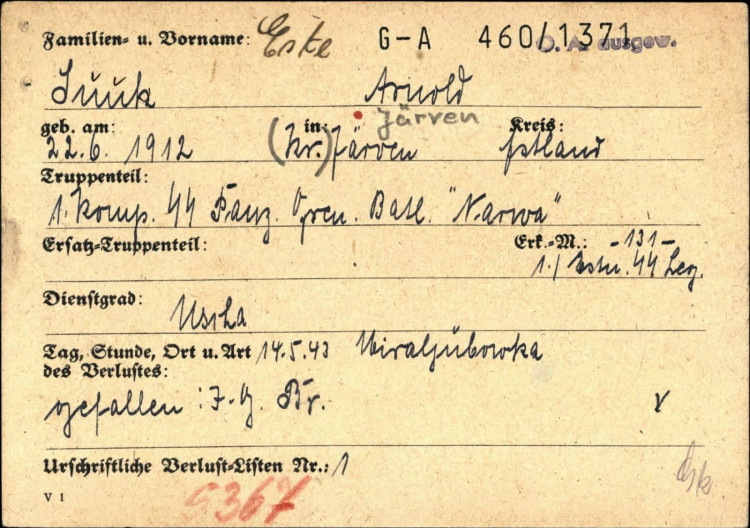 Familien- u. Vorname: Este G-A 460/1371 D. A. ausgew.
Suuk Arnold
geb. am: in: Järven Kreis:
22.6. 1912 (Kr.) Järven Estland
Truppenteil:
1. Komp. SS Panz. Gren. Batl. "Narwa"
Ersatz-Truppenteil: Erk.-M.: -131-
1./ Estn. SS Leg.
Dienstgrad:
Uscha
Tag, Stunde, Ort u. Art 14.5.43 Miraljubowka
des Verlustes:
gefallen: I.G. Br.
Urschriftliche Verlust-Listen Nr.: 1
V 1
5367